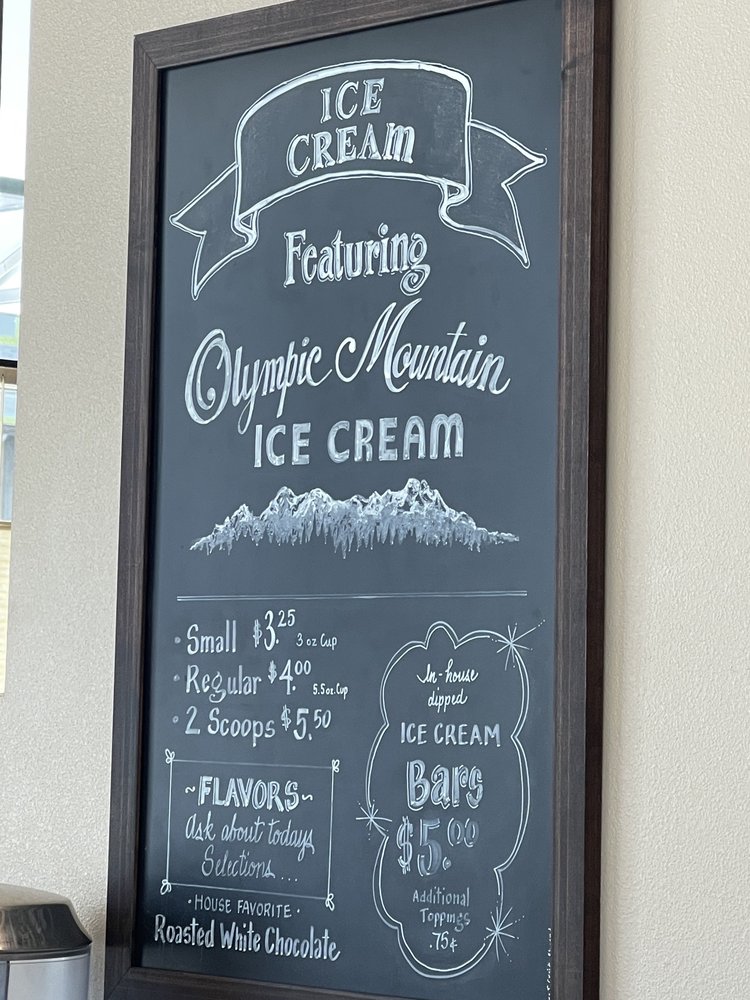 ICE
CREAM
Featuring
Olympic Mountain
ICE CREAM
· Small $3.25 3 oz Cup
· Regular $4.00 5.5oz. Cup
· 2 Scoops $5.50
~FLAVORS~
Ask about todays
Selections ...
· HOUSE FAVORITE ·
Roasted White Chocolate
In-house
dipped
ICE CREAM
Bars
$5.00
Additional
Toppings
.75¢